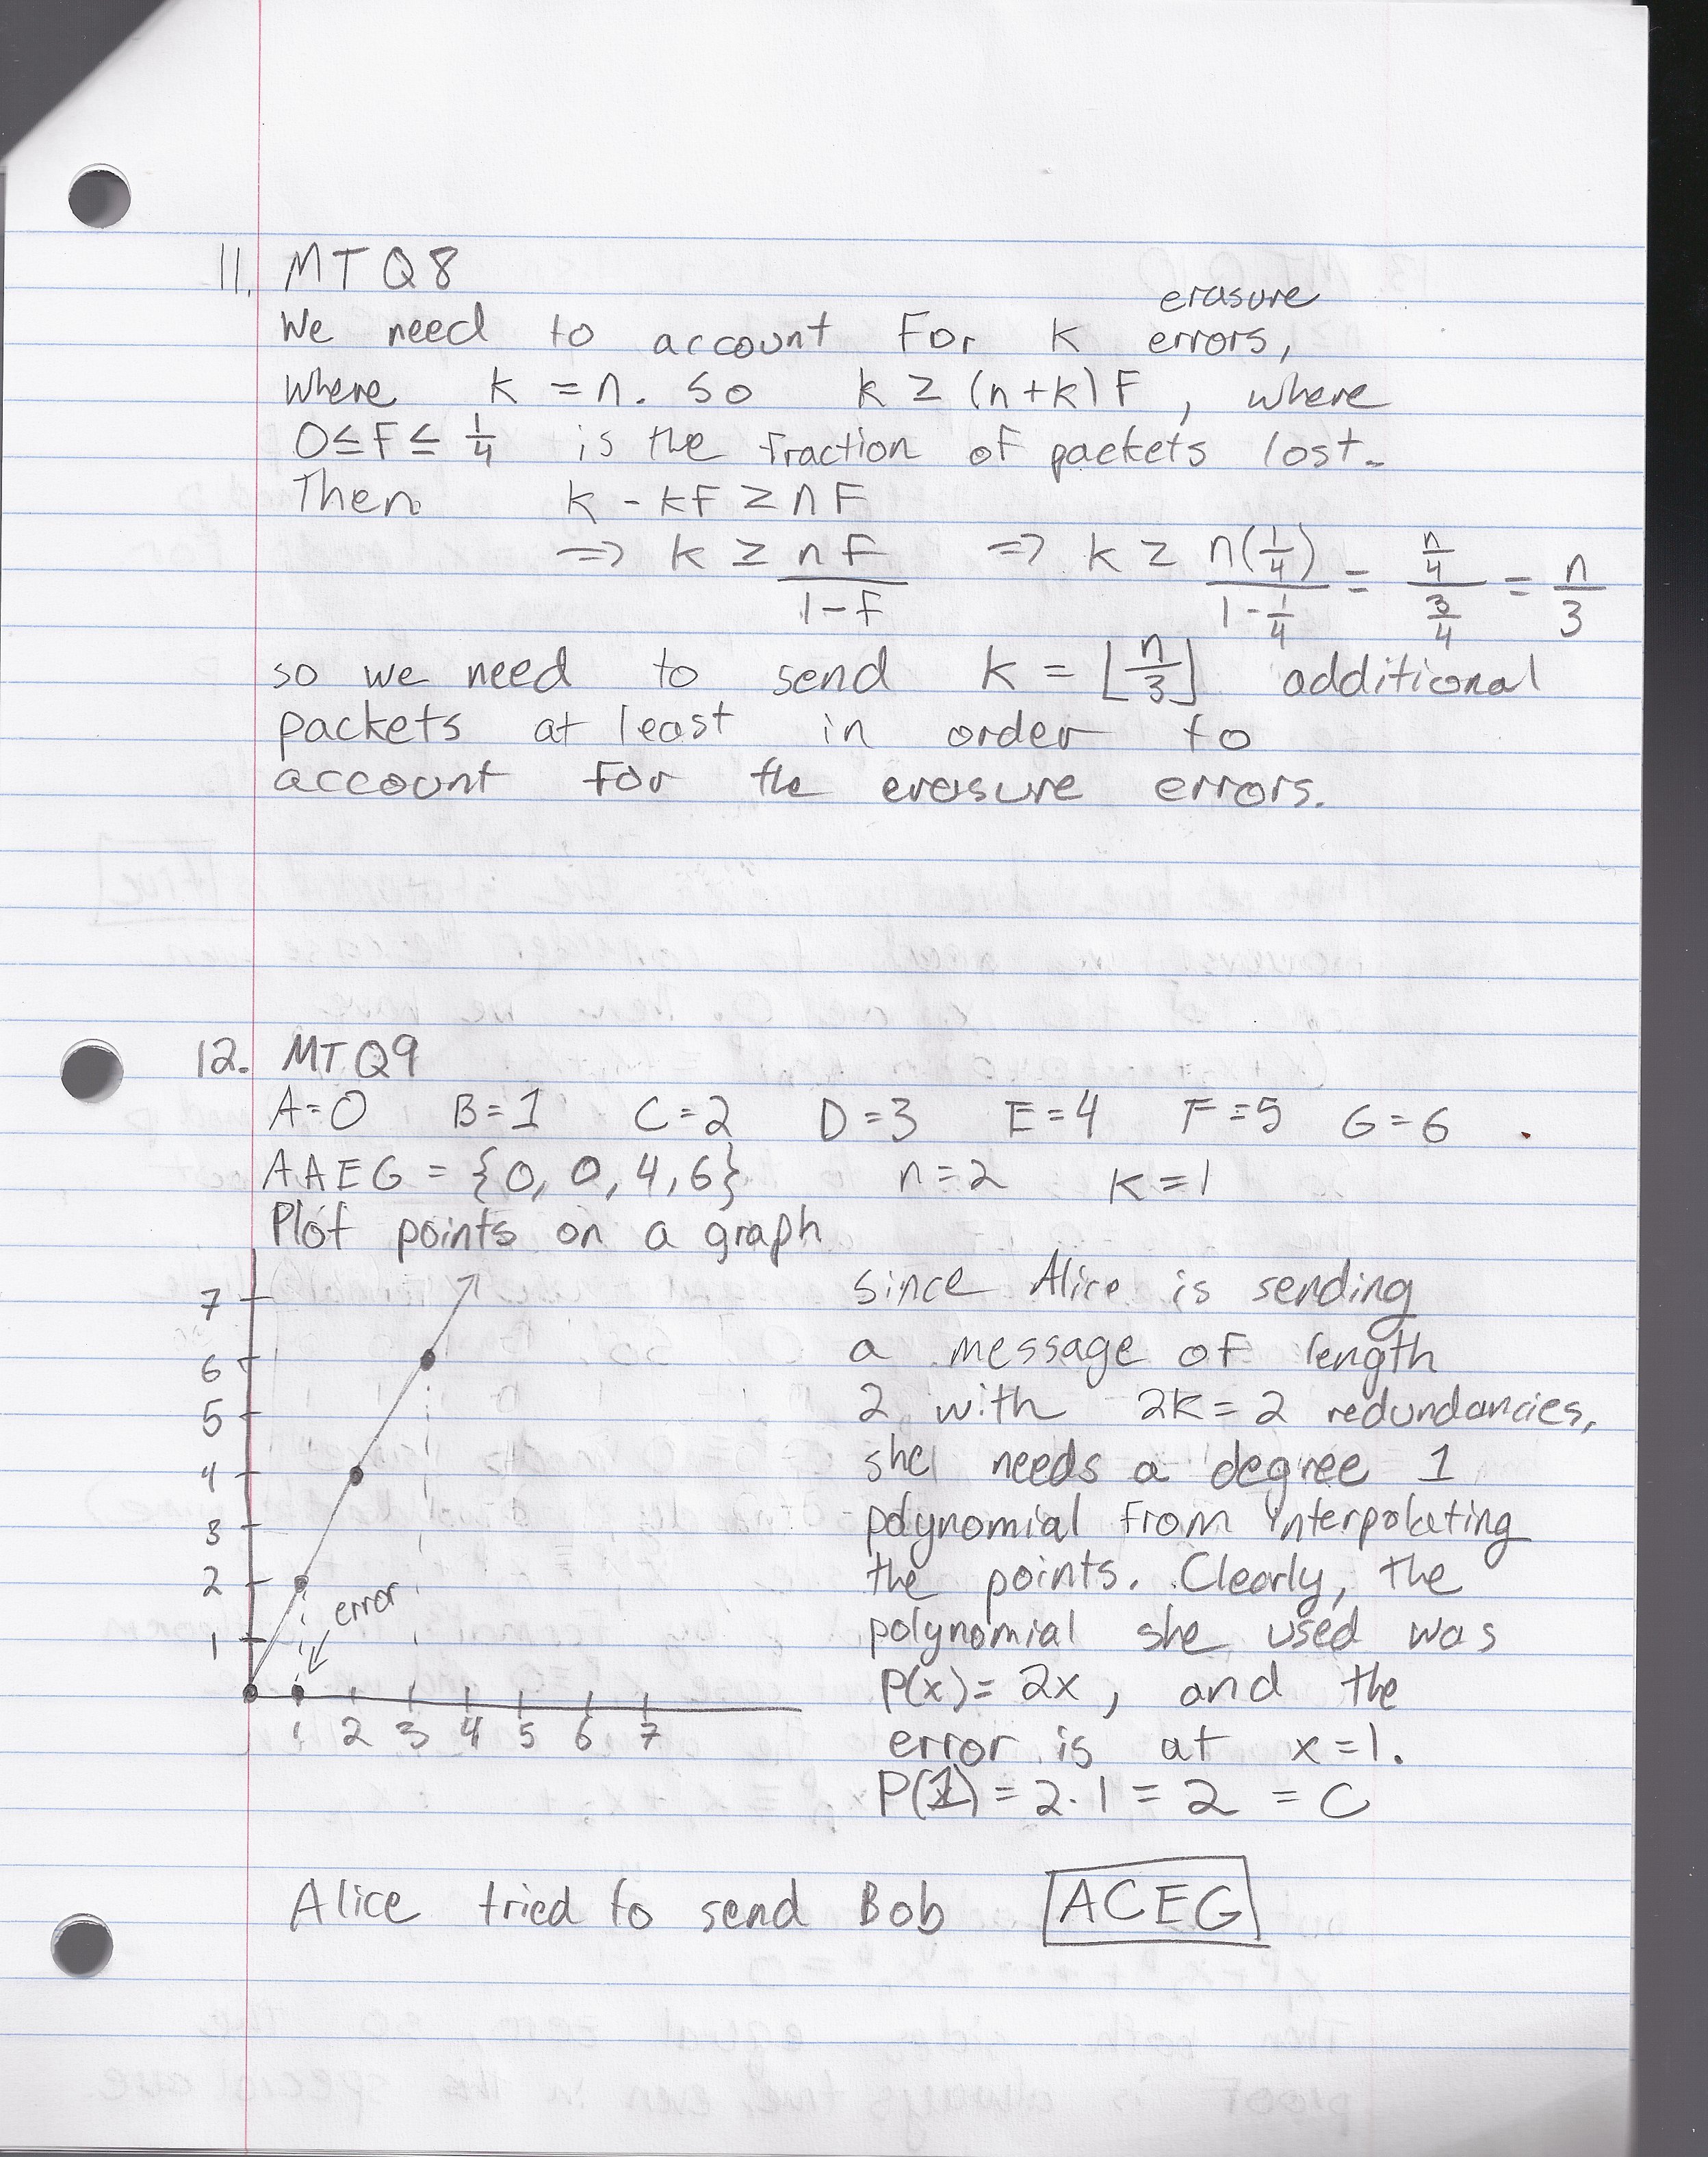 11. MTQ8
erasure
We need to account For k errors,
where k = n. So k ≥ (n+k)F, where
0≤F≤ 1/4 is the fraction of packets lost.
Then k - kF ≥ nF
⇒ k ≥ nF/(1-F) ⇒ k ≥ n(1/4)/(1-1/4) = (n/4)/(3/4) = n/3
so we need to send k = ⌊n/3⌋ additional
packets at least in order to
account for the erasure errors.
12. MTQ9
A=0 B=1 C=2 D=3 E=4 F=5 G=6
AAEG = {0, 0, 4, 6} n=2 K=1
Plot points on a graph
7
6
5
4
3
2
1
error
1 2 3 4 5 6 7
since Alice is sending
a message of length
2 with 2K=2 redundancies,
she needs a degree 1
polynomial from interpolating
the points. Clearly, the
polynomial she used was
P(x)= 2x, and the
error is at x=1.
P(1) = 2·1 = 2 = C
Alice tried to send Bob ACEG